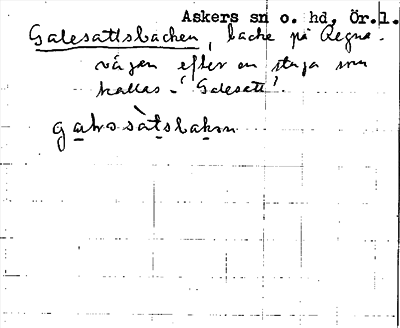 Askers sn o. hd, Ör.l.
Galesattsbacken, backe på Regna-
vägen efter en stuga som
kallas "Galesatt".